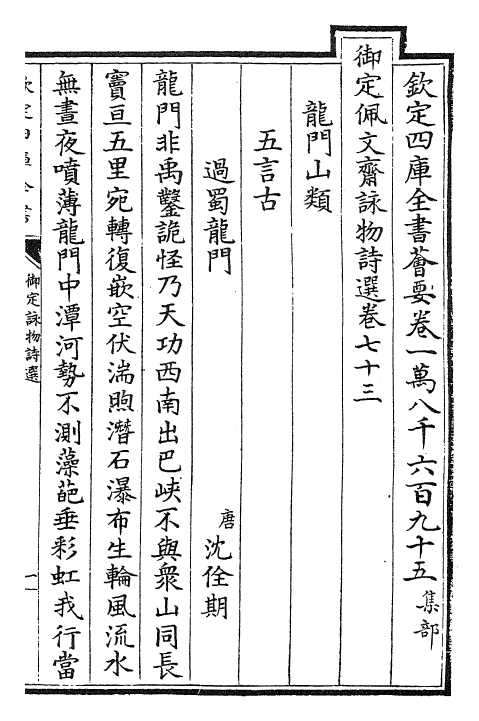 欽定四庫全書薈要卷一萬八千六百九十五 集部
御定佩文齋詠物詩選卷七十三
龍門山類
五言古
過蜀龍門 唐 沈佺期
龍門非禹鑿詭怪乃天功西南出巴峽不與衆山同長
竇亘五里宛轉復嵌空伏湍煦潛石瀑布生輪風流水
無晝夜噴薄龍門中潭河勢不測藻葩垂彩虹我行當
御定詠物詩選
一